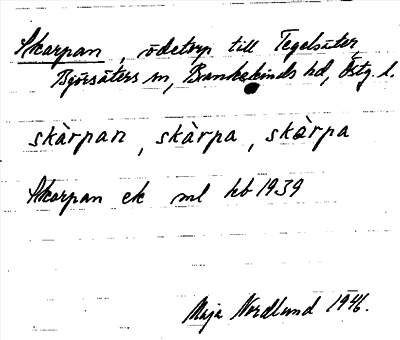 Skarpan, ödetorp till Tegelsäter,
Björsäters sn, Bankekinds hd, Östg. l.
skàrpan, skàrpa, skàrpa
Skarpan ek ml hb 1939
Maja Nordlund 1946.